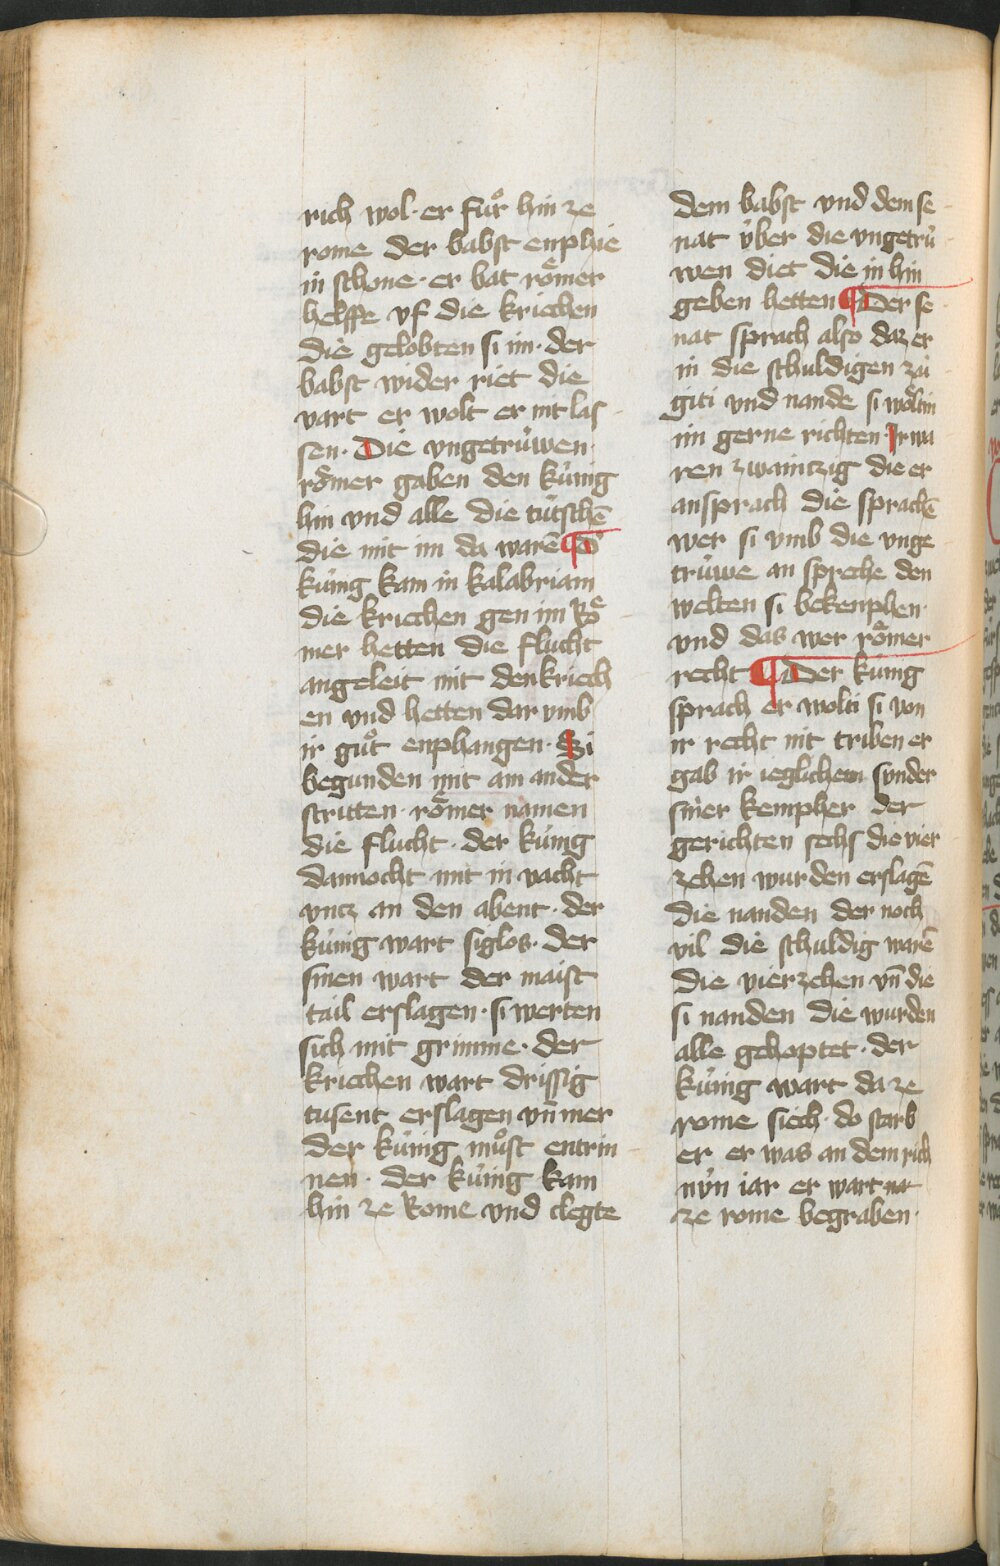 rich wol · er fuͦr hin ze
rome der babst enphie
in schone · er bat roͤmer
helffe vf die kriechen
die gelobten si im · der
babst wider riet die
vart er wolt er nit las
sen · Die vngetruͥwen
roͤmer gaben den kuͥnig
hin vnd alle die tuͥtschē
die mit im da warē ¶ D̕
kuͥnig kam in kalabriam
die kriechen gen im Roͤ
mer hetten die flucht
angeleit mit den kriech
en vnd hetten dar vmb
ir guͦt enphangen · Si
begunden mit am ander
stritten · roͤmer namen
die flucht · der kuͥnig
dannocht mit in vacht
vncz an den abent · der
kuͥnig wart siglos · der
sinen wart der maist
tail erslagen · si werten
sich mit grimme · der
kriechen wart drissig
tusent erslagen vn̄ mer
der kuͥnig muͦst entrin
nen · der kuͥnig kam
hin ze Rome vnd clegte
dem babst vnd dem se
nat vͥber die vngetruͥ
wen diet die in hin
geben hetten ¶ Der se
nat sprach also daz er
in die schuldigen zuͦ
giti vnd nande si woͤltin
im gerne richten · Ir wa
ren zwaintzig die er
ansprach die sprachē
wer si vmb die vnge
truͥwe an spreche den
welten si bekenphen ·
vnd das wer roͤmer
recht ¶ Der kuͥnig
sprach er wolti si von
ir recht nit triben er
gab ir ieglichem sunder
siner kempher der
gerichten sechs die vier
zehen wurden erslagē
die nanden der noch
vil die schuldig warē
die vierzehen vn̄ die
si nanden die wurden
alle gehoptet · der
kuͥnig wart da ze
rome siech · do starb
er er was an dem rich
nuͥn iar er wart
ze rome begraben ·